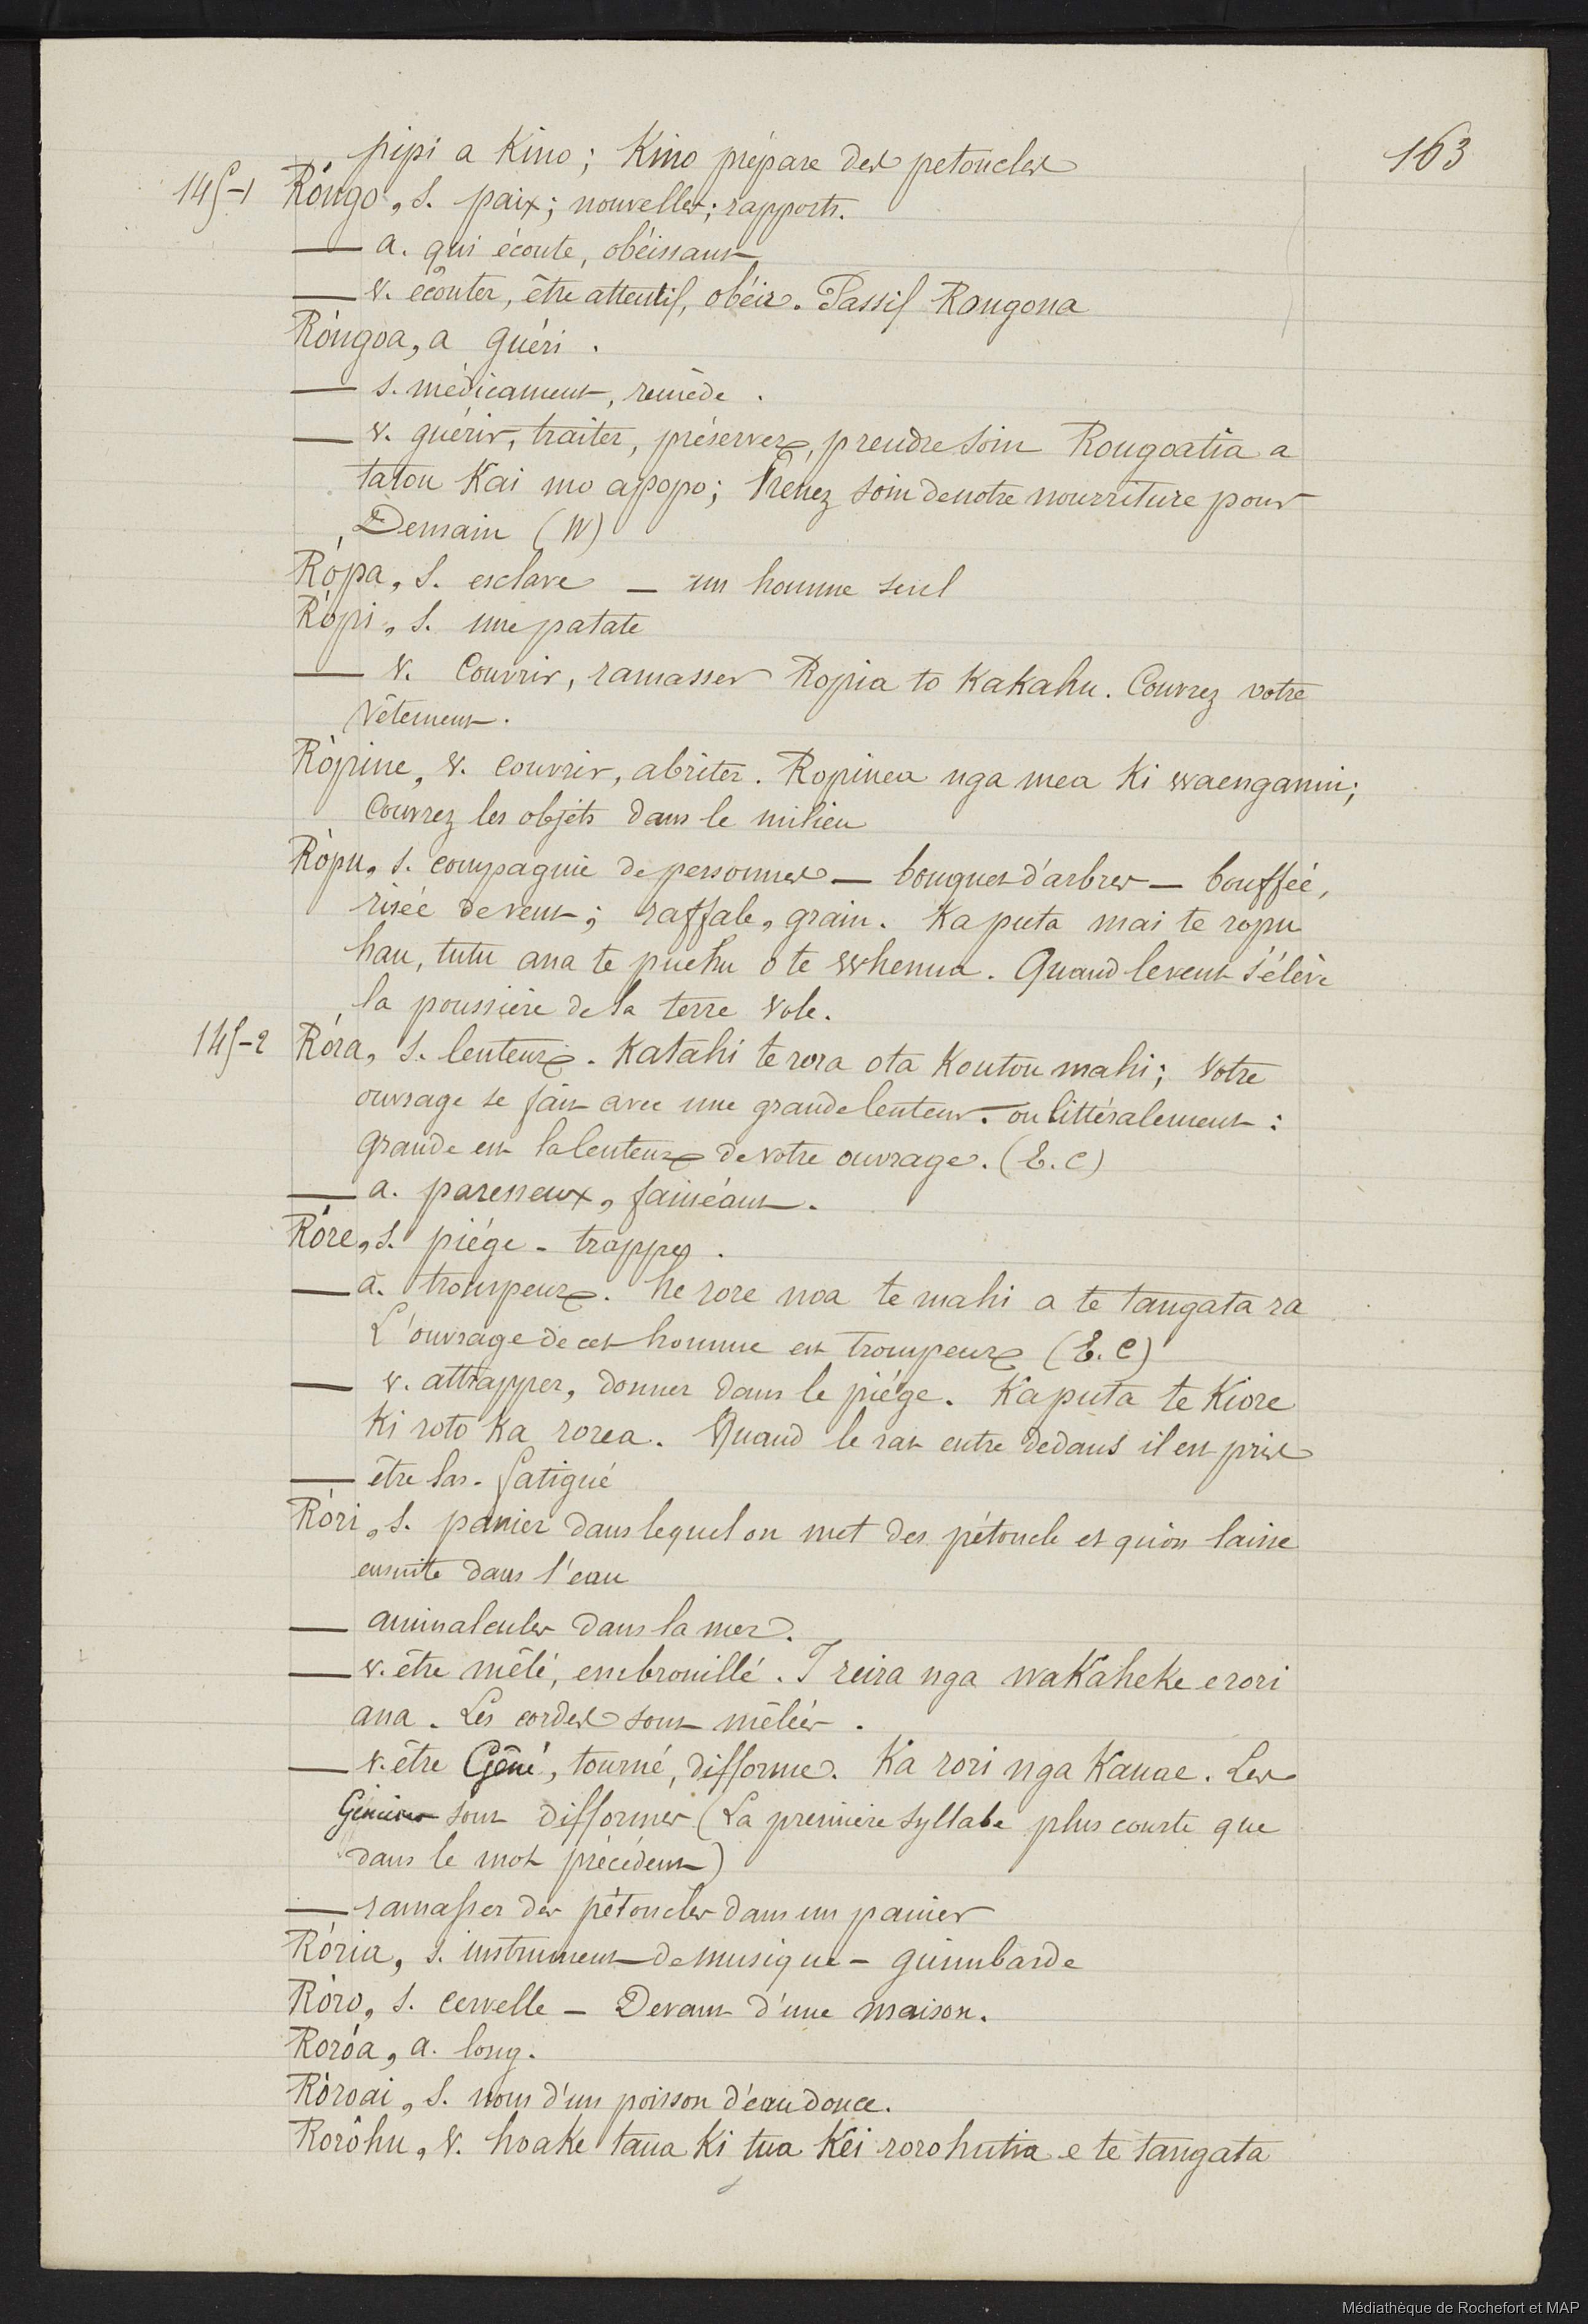 163
pipi a Kino; Kino prépare des petoncles
145-1 Róngo, s. paix; nouvelles; rapports.
— a. qui écoute, obéissant
— v. écouter, être attentif, obéir. Passif Rongona
Róngoa, a guéri.
— s. médicament, remède.
— v. guérir, traiter, préserver, prendre soin Rongoatia a
tatou Kai mo apopo; Prenez soin de notre nourriture pour
Demain (W)
Rópa, s. esclave — un homme seul
Rópi, s. une patate
— v. Couvrir, ramasser Ropia to Kakahu. Couvrez votre
Vêtement.
Ròpine, v. couvrir, abriter. Ropinea nga mea Ki waenganui;
Couvrez les objets dans le milieu
Ròpu, s. compagnie de personnes — bouquet d'arbres — bouffée,
risée de vent; raffale, grain. Ka puta mai te ropu
hau, tutu ana te puehu o te whenua. Quand le vent s'élève
la poussière de la terre vole.
145-2 Róra, s. lenteur. Katahi te rora ota Koutou mahi; Votre
ouvrage se fait avec une grande lenteur. ou littéralement:
grande est la lenteur de votre ouvrage. (E. C)
— a. paresseux, fainéant.
Róre, s. piége - trappe.
— a. trompeur. he rore noa te mahi a te tangata ra
L'ouvrage de cet homme est trompeur (E. C)
— v. attrapper, donner dans le piége. Ka puta te Kiore
Ki roto Ka rorea. Quand le rat entre dedans il est pris
— être las. fatigué
Róri, s. panier dans lequel on met des pétoncle et qu'on laisse
ensuite dans l'eau
— animalcules dans la mer.
— v. être mêlé, embrouillé. I reira nga waKaheke e rori
ana. Les cordes sont mêlées.
— v. être Gêné, tourné, difforme. Ka rori nga Kauae. Les
Gencives sont difformes (La première syllabe plus courte que
dans le mot précédent)
— ramasser des pétoncles dans un panier
Rória, s. instrument de musique - guimbarde
Róro, s. cervelle — Devant d'une maison.
Roróa, a. long.
Ròroai, s. nom d'un poisson d'eau douce.
Rorôhu, v. hoake taua Ki tua Kei rorohutia e te tangata
Médiathèque de Rochefort et MAP